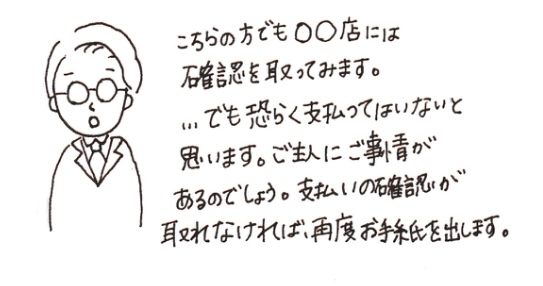 こちらの方でも〇〇店には
確認を取ってみます。
…でも恐らく支払ってはいないと
思います。ご主人にご事情が
あるのでしょう。支払いの確認が
取れなければ、再度お手紙を出します。